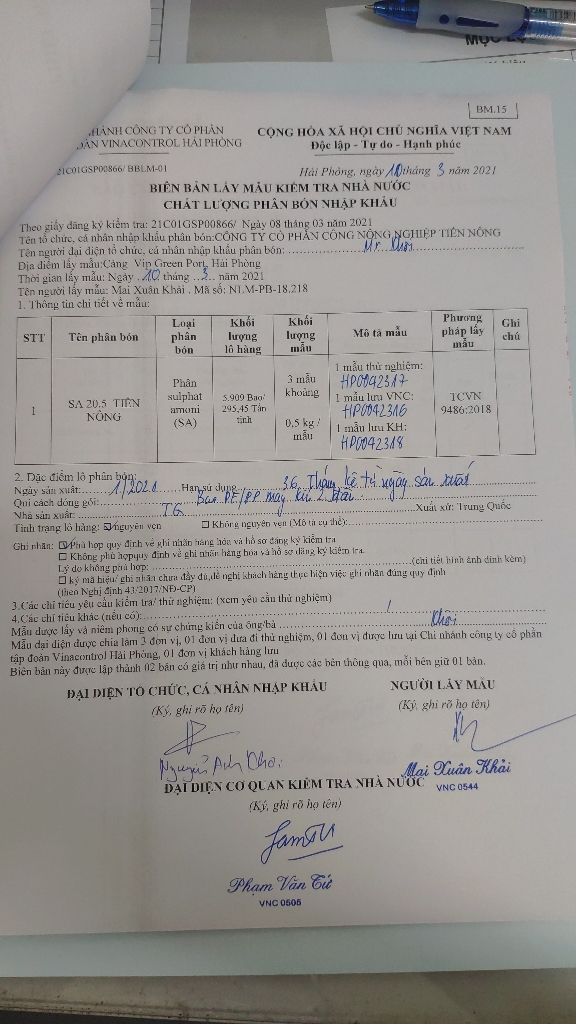 MỤC
BM.15
HÁNH CÔNG TY CỔ PHẦN
CỘNG HÒA XÃ HỘI CHỦ NGHĨA VIỆT NAM
ĐOÀN VINACONTROL HẢI PHÒNG
Độc lập - Tự do - Hạnh phúc
21C01GSP00866/ BBLM-01
Hải Phòng, ngày 10 tháng 3 năm 2021
BIÊN BẢN LẤY MẪU KIỂM TRA NHÀ NƯỚC
CHẤT LƯỢNG PHÂN BÓN NHẬP KHẨU
Theo giấy đăng ký kiểm tra: 21C01GSP00866/ Ngày 08 tháng 03 năm 2021
Tên tổ chức, cá nhân nhập khẩu phân bón:CÔNG TY CỔ PHẦN CÔNG NÔNG NGHIỆP TIẾN NÔNG
Tên người đại diện tổ chức, cá nhân nhập khẩu phân bón: Mr. Khôi
Địa điểm lấy mẫu:Cảng Vip Green Port, Hải Phòng
Thời gian lấy mẫu: Ngày 10 tháng 3 năm 2021
Tên người lấy mẫu: Mai Xuân Khải . Mã số: NLM-PB-18.218
1. Thông tin chi tiết về mẫu:
STT Tên phân bón Loại phân bón Khối lượng lô hàng Khối lượng mẫu Mô tả mẫu Phương pháp lấy mẫu Ghi chú
1 SA 20.5 TIẾN NÔNG Phân sulphat amoni (SA) 5.909 Bao/ 295,45 Tấn tịnh 3 mẫu khoảng 0,5 kg / mẫu 1 mẫu thử nghiệm: HP0042317 1 mẫu lưu VNC: HP0042316 1 mẫu lưu KH: HP0042318 TCVN 9486:2018
2. Đặc điểm lô phân bón:
Ngày sản xuất: 1/2021 Hạn sử dụng 36 Tháng kể từ ngày sản xuất
Qui cách đóng gói: Bao PE/PP may kín 2 đầu
Nhà sản xuất: TG Xuất xứ: Trung Quốc
Tình trạng lô hàng: ☑ nguyên vẹn ☐ Không nguyên vẹn (Mô tả cụ thể):
Ghi nhãn: ☑ Phù hợp quy định về ghi nhãn hàng hóa và hồ sơ đăng ký kiểm tra
☐ Không phù hợpquy định về ghi nhãn hàng hóa và hồ sơ đăng ký kiểm tra.
Lý do không phù hợp: (chi tiết hình ảnh đính kèm)
☐ ký mã hiệu/ ghi nhãn chưa đầy đủ,đề nghị khách hàng thực hiện việc ghi nhãn đúng quy định
(theo Nghị định 43/2017/NĐ-CP)
3.Các chỉ tiêu yêu cầu kiểm tra/ thử nghiệm: (xem yêu cầu thử nghiệm)
4.Các chỉ tiêu khác (nếu có): /
Mẫu được lấy và niêm phong có sự chứng kiến của ông/bà Khôi
Mẫu đại diện được chia làm 3 đơn vị, 01 đơn vị đưa đi thử nghiệm, 01 đơn vị được lưu tại Chi nhánh công ty cổ phần
tập đoàn Vinacontrol Hải Phòng, 01 đơn vị khách hàng lưu
Biên bản này được lập thành 02 bản có giá trị như nhau, đã được các bên thông qua, mỗi bên giữ 01 bản.
ĐẠI DIỆN TỔ CHỨC, CÁ NHÂN NHẬP KHẨU
NGƯỜI LẤY MẪU
(Ký, ghi rõ họ tên)
(Ký, ghi rõ họ tên)
Nguyễn Anh Khôi
Mai Xuân Khải
VNC 0544
ĐẠI DIỆN CƠ QUAN KIỂM TRA NHÀ NƯỚC
(Ký, ghi rõ họ tên)
Phạm Văn Tứ
VNC 0505